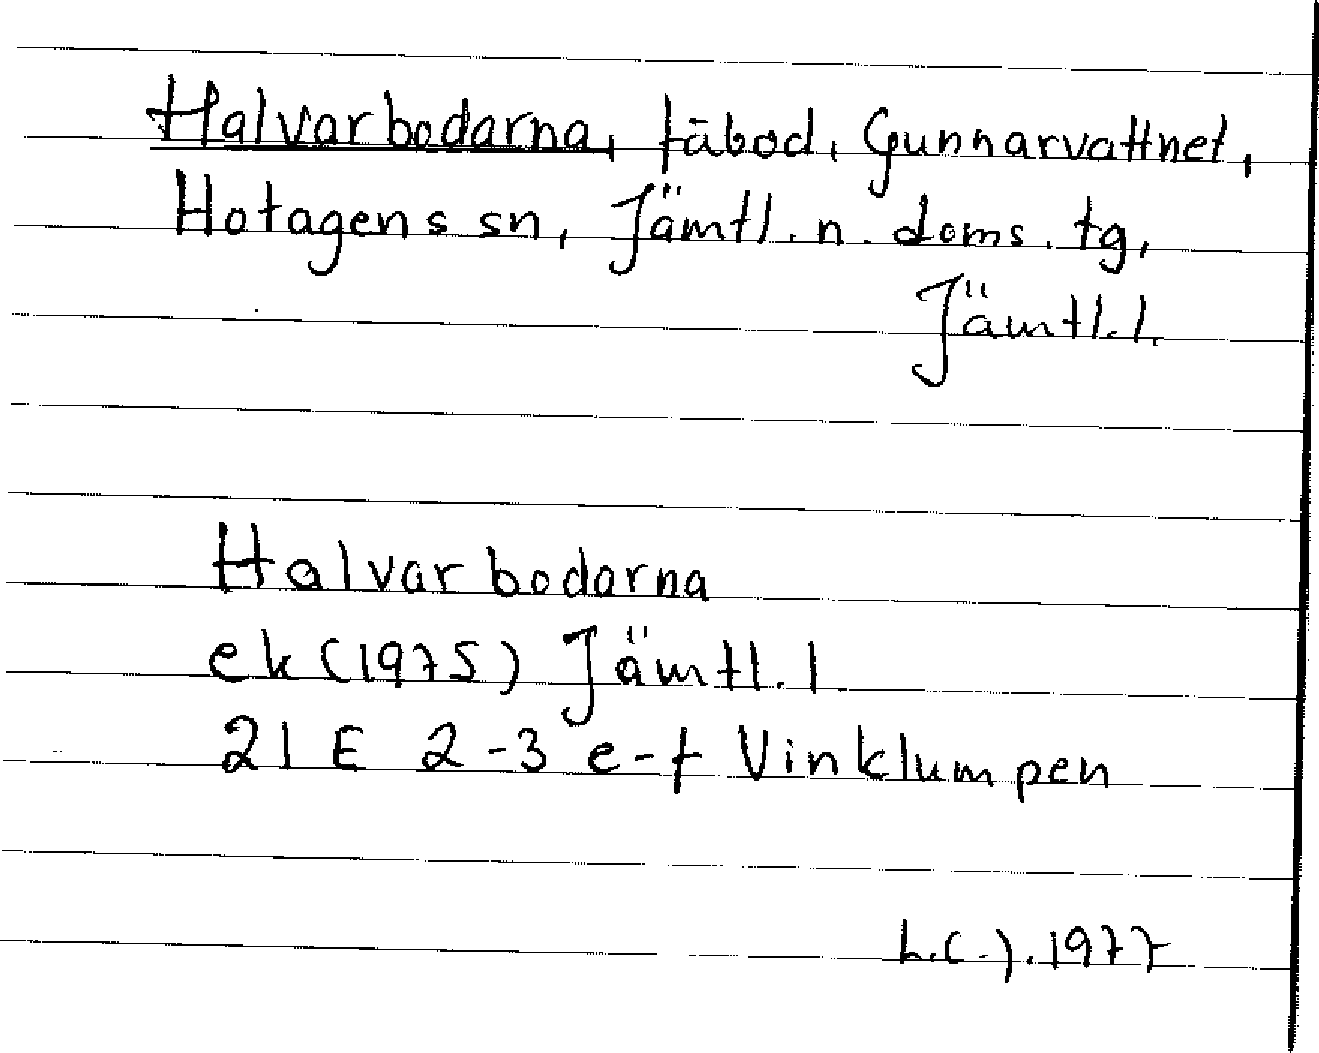 Halvarbodarna, fäbod, Gunnarvattnet,
Hotagens sn, Jämtl. n. doms. tg,
Jämtl. l.
Halvarbodarna
ek (1975) Jämtl. l
21 E 2-3 e-f Vinklumpen
L.C.J. 1977